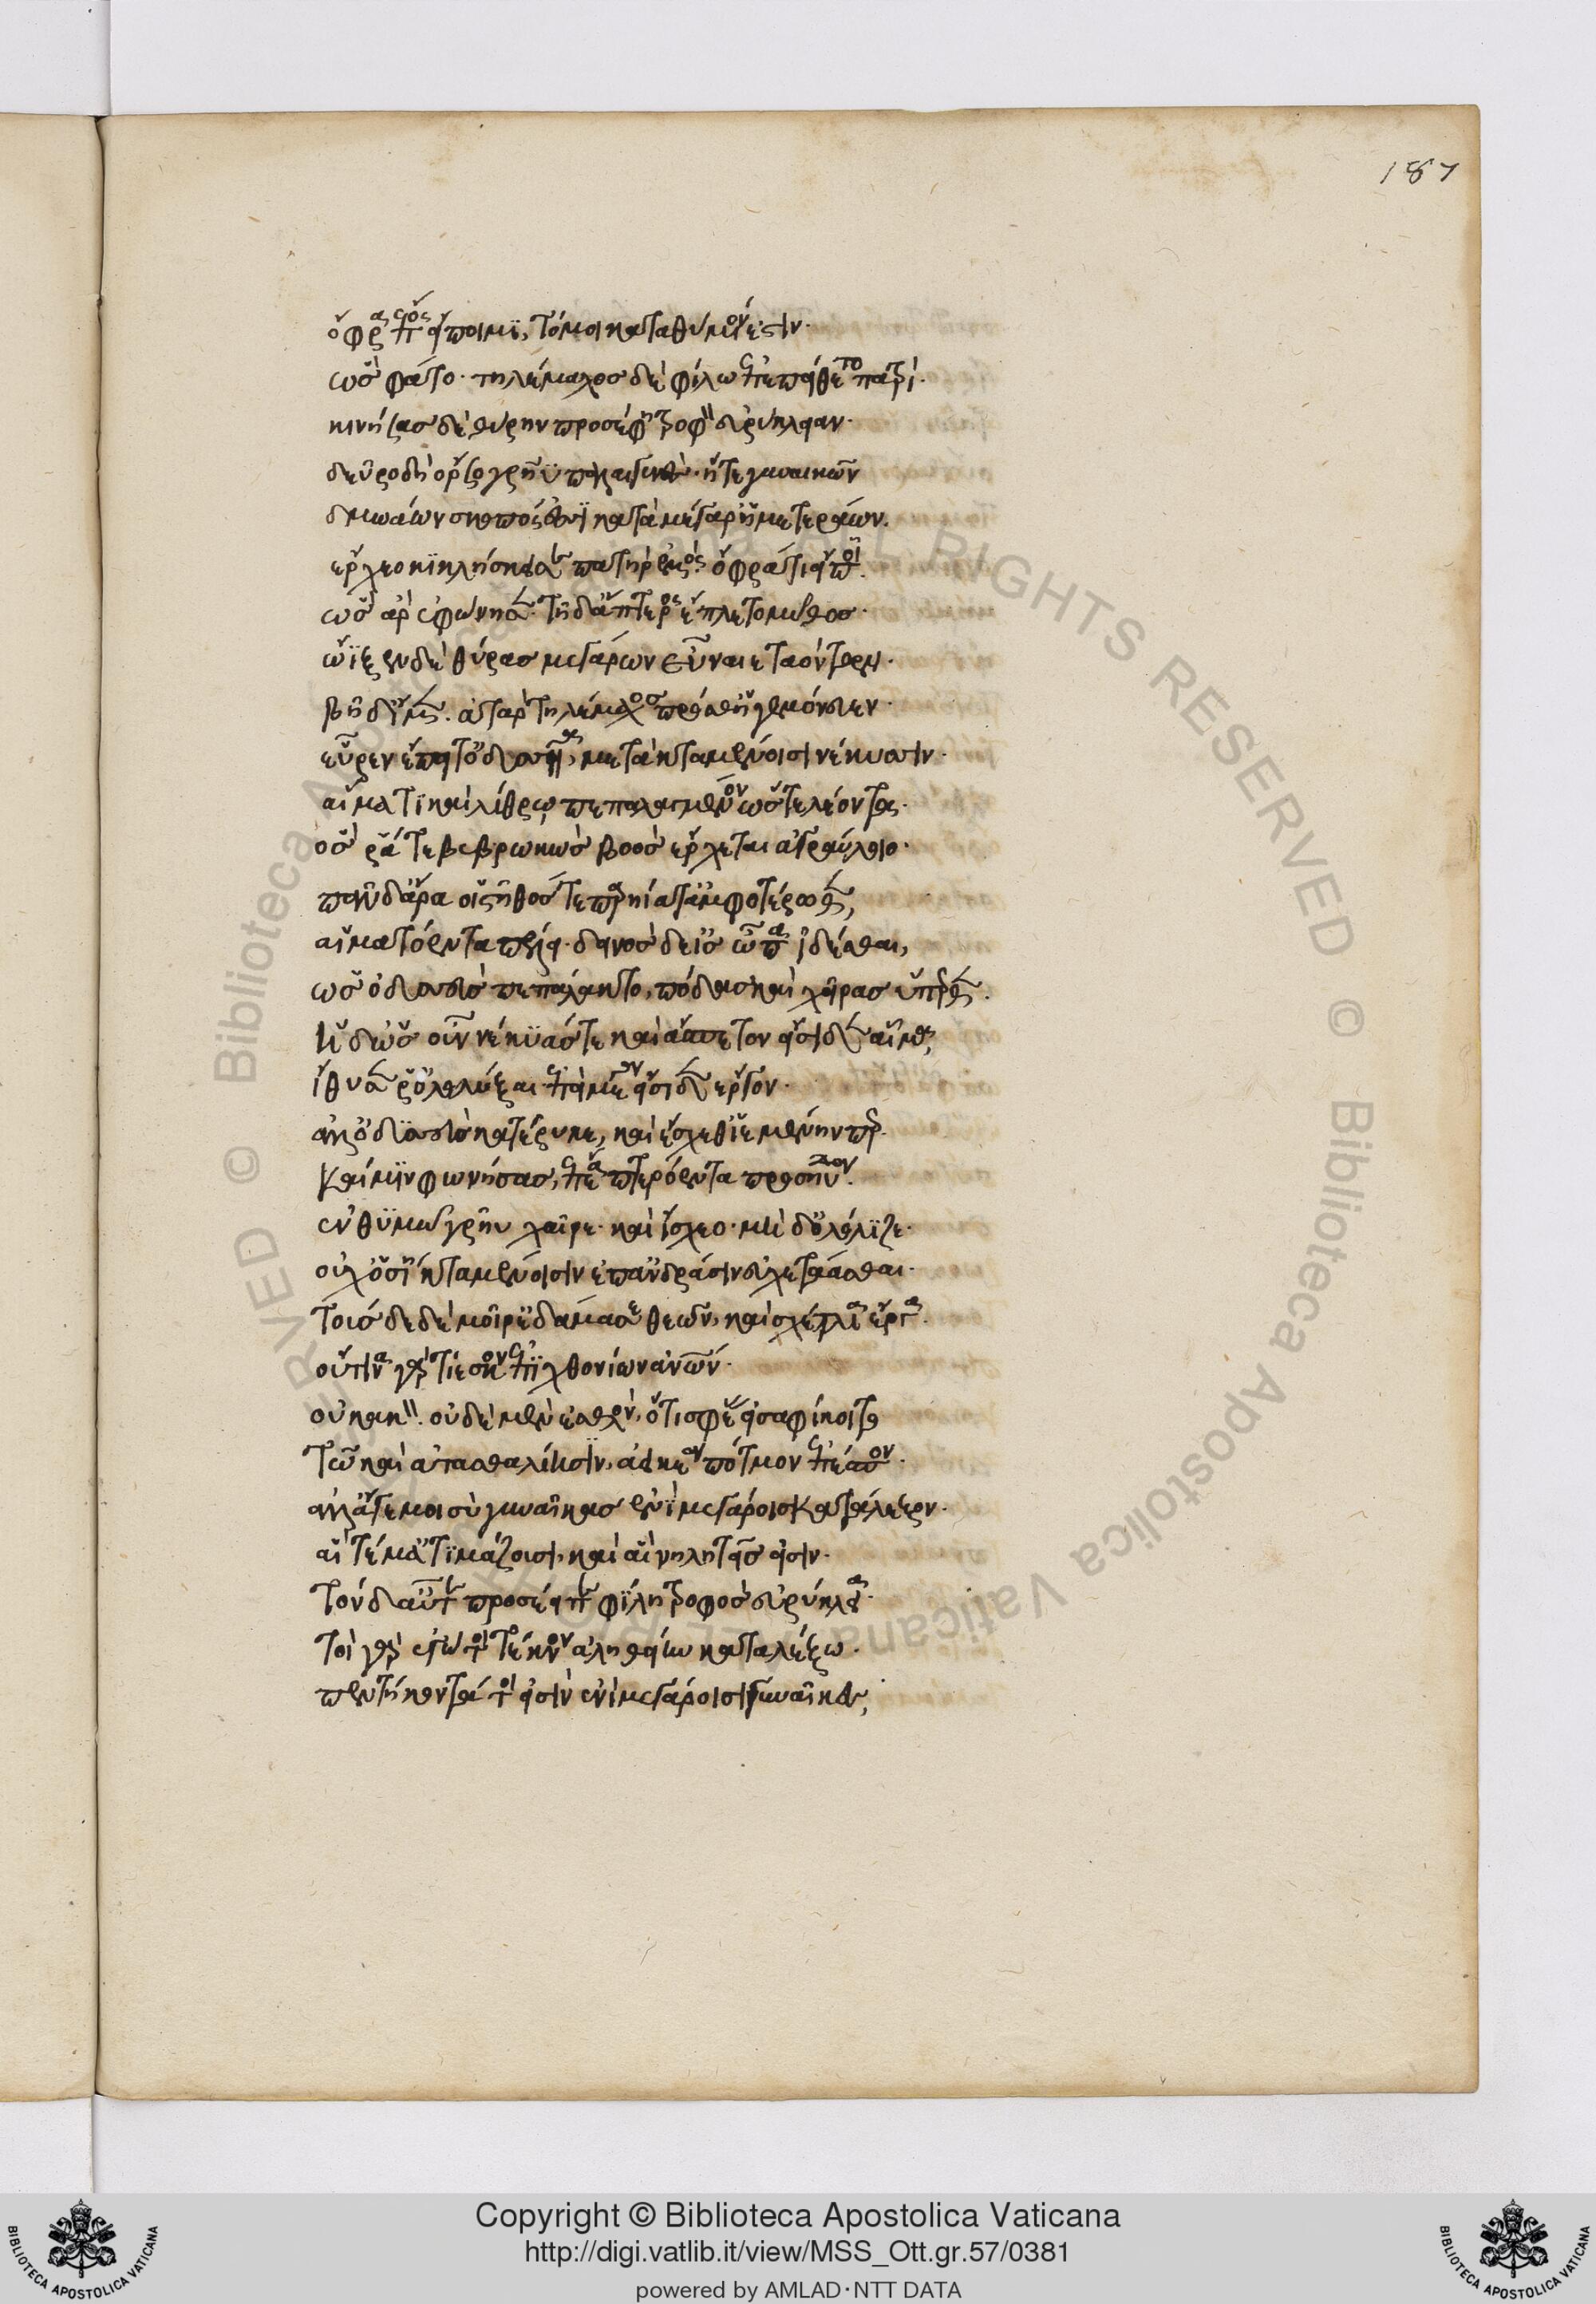 187
ὄφρα ἔπος εἴποιμϊ, τό μοι καταθύμιόν ἐστιν.
ὣς φάτο. τηλέμαχος δὲ φίλω ἐπεπείθετο πατρί.
κινήσας δὲ θύρην προσέφη τροφὸν εὐρύκλειαν.
δεῦρο δὴ ὄρσο γρηῢ παλαιγενὲς. ἥτε γυναικῶν
δμωάων σκοπός ἐσσϊ κατὰ μέγαρ' ἡμετεράων.
ἔρχεο κϊκλήσκει σε πατὴρ ἐμὸς. ὄφρά τι εἴποϊ.
ὣς ἄρ ἐφώνησεν. τῆ δ' ἄπτερος ἔπλετο μῦθος.
ὤϊξεν δὲ θύρας μεγάρων εὖ ναιεταόντων.
βῆ δ' ἴμεν. αὐτὰρ τηλέμαχος πρόσθ' ἡγεμόνευεν.
εὗρεν ἔπειτ' ὀδυσῆα, μετὰ κταμένοισι νέκυσιν.
αἵματϊ καὶ λύθρω πεπαλαγμένον ὥς τε λέοντα.
ὅς ῥά τε βεβρωκὼς βοὸς ἔρχεται ἀγραύλοιο.
πᾶν δ' ἄρα οἱ στῆθός τε παρήϊά τ' ἀμφοτέρωθεν,
αἱματόεντα πέλει. δεινὸς δ' εἰς ὦπα ἰδέσθαι,
ὣς ὀδυσεὺς πεπάλακτο, πόδας καὶ χεῖρας ὕπερθεν.
ἡ δ' ὡς οὖν νέκϋάς τε καὶ ἄσπετον εἴσιδεν αἷμα,
ἴθυσέν ῥ' ὀλολύξαι ἐπεὶ μέγα εἴσιδεν ἔργον.
ἀλλ' ὀδϋσεὺς κατέρυκε, καὶ ἔσχεθεν ἱεμένην περ.
καί μϊν φωνήσας, ἔπεα πτερόεντα προσηύδα.
ἐν θϋμῶ γρῆυ χαῖρε. καὶ ἴσχεο. μὴ δ' ὀλόλϋζε.
οὐχ' ὁσίη κταμένοισιν ἐπ' ἀνδράσιν εὐχετάασθαι.
τούς δε δὲ μοῖρ' ἐδάμασε θεῶν, καὶ σχέτλια ἔργα.
οὔτινα γὰρ τίεσκον ἐπϊχθονίων ἀνθρώπων.
οὐ κακὸν. οὐδὲ μὲν ἐσθλὸν, ὅτις σφέας εἰσαφίκοιτο
τῶ καὶ ἀτασθαλίησϊν, ἀεικέα πότμον ἐπέσπον.
ἀλλ' ἄγε μοι σὺ γυναῖκας ἐνϊ μεγάροις κατάλεξον.
αἵ τέ μ' ἀτϊμάζουσι, καὶ αἳ νηλητεῖς εἰσιν.
τὸν δ' αὖτε προσέειπε φϊλη τροφὸς εὐρύκλεια.
τοὶ γὰρ ἐγώ τοι τέκνον ἀληθείην καταλέξω.
πεντήκοντά τοι εἰσιν ἐνὶ μεγάροισι γυναῖκες,
Copyright © Biblioteca Apostolica Vaticana
http://digi.vatlib.it/view/MSS_Ott.gr.57/0381
powered by AMLAD·NTT DATA